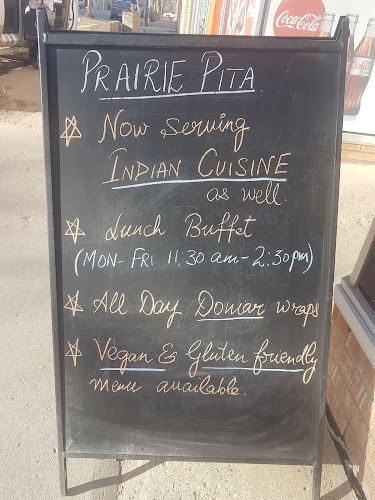 PRAIRIE PITA.
Now serving
INDIAN CUISINE
as well.
Lunch Buffet
(MON- FRI 11.30 am - 2:30pm)
All Day Doniar wraps
Vegan & Gluten friendly
menu available.
Coca-Cola